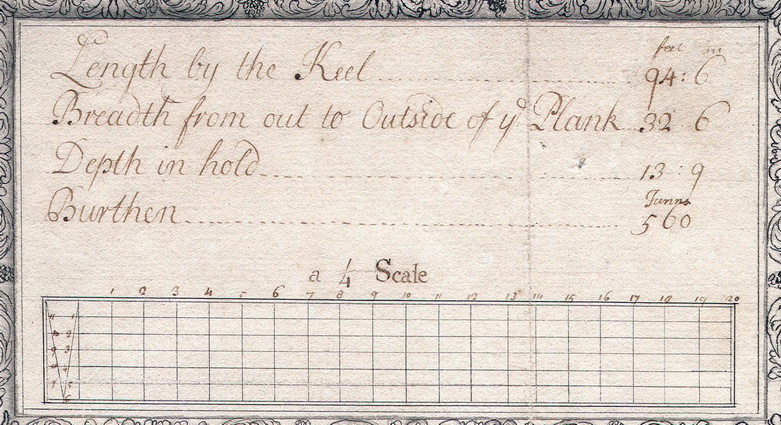 feet in
Length by the Keel 94:6
Breadth from out to Outside of yᵉ Plank 32 6
Depth in hold 13:9
Tunns
Burthen 560
a 1/4 Scale
1 2 3 4 5 6 7 8 9 10 11 12 13 14 15 16 17 18 19 20
11 1
10 2
9 3
8 4
7 5
6